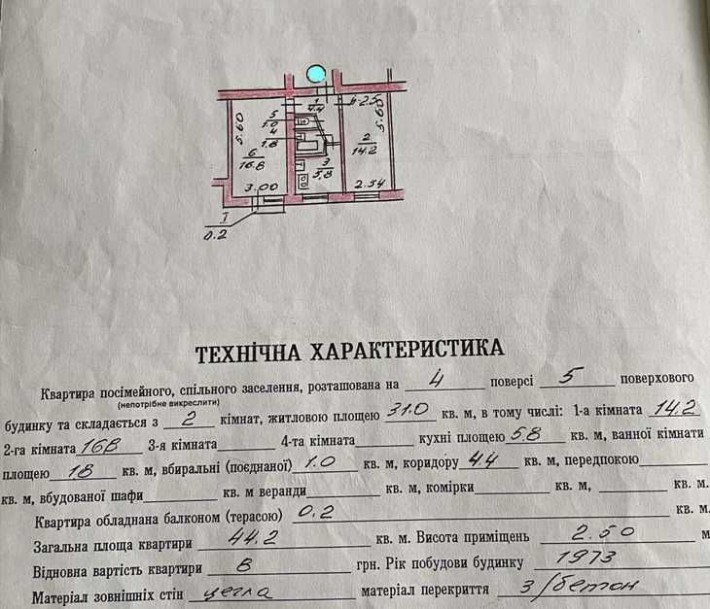 1
4.4
h-2.5
5
1.0
4
1.8
5.60
5.60
2
14.2
6
16.8
3
5.8
3.00
2.54
I
0.2
ТЕХНІЧНА ХАРАКТЕРИСТИКА
Квартира посімейного, спільного заселення, розташована на 4 поверсі 5 поверхового
(непотрібне викреслити)
будинку та складається з 2 кімнат, житловою площею 31.0 кв. м, в тому числі: 1-а кімната 14,2
2-га кімната 16.8 3-я кімната 4-та кімната кухні площею 5.8 кв. м, ванної кімнати
площею 1.8 кв. м, вбиральні (поєднаної) 1.0 кв. м, коридору 4.4 кв. м, передпокою
кв. м, вбудованої шафи кв. м веранди кв. м, комірки кв. м, кв. м.
Квартира обладнана балконом (терасою) 0.2 кв. м.
Загальна площа квартири 44.2 кв. м. Висота приміщень 2.50 м
Відновна вартість квартири В грн. Рік побудови будинку 1973
Матеріал зовнішніх стін цегла матеріал перекриття з/бетон